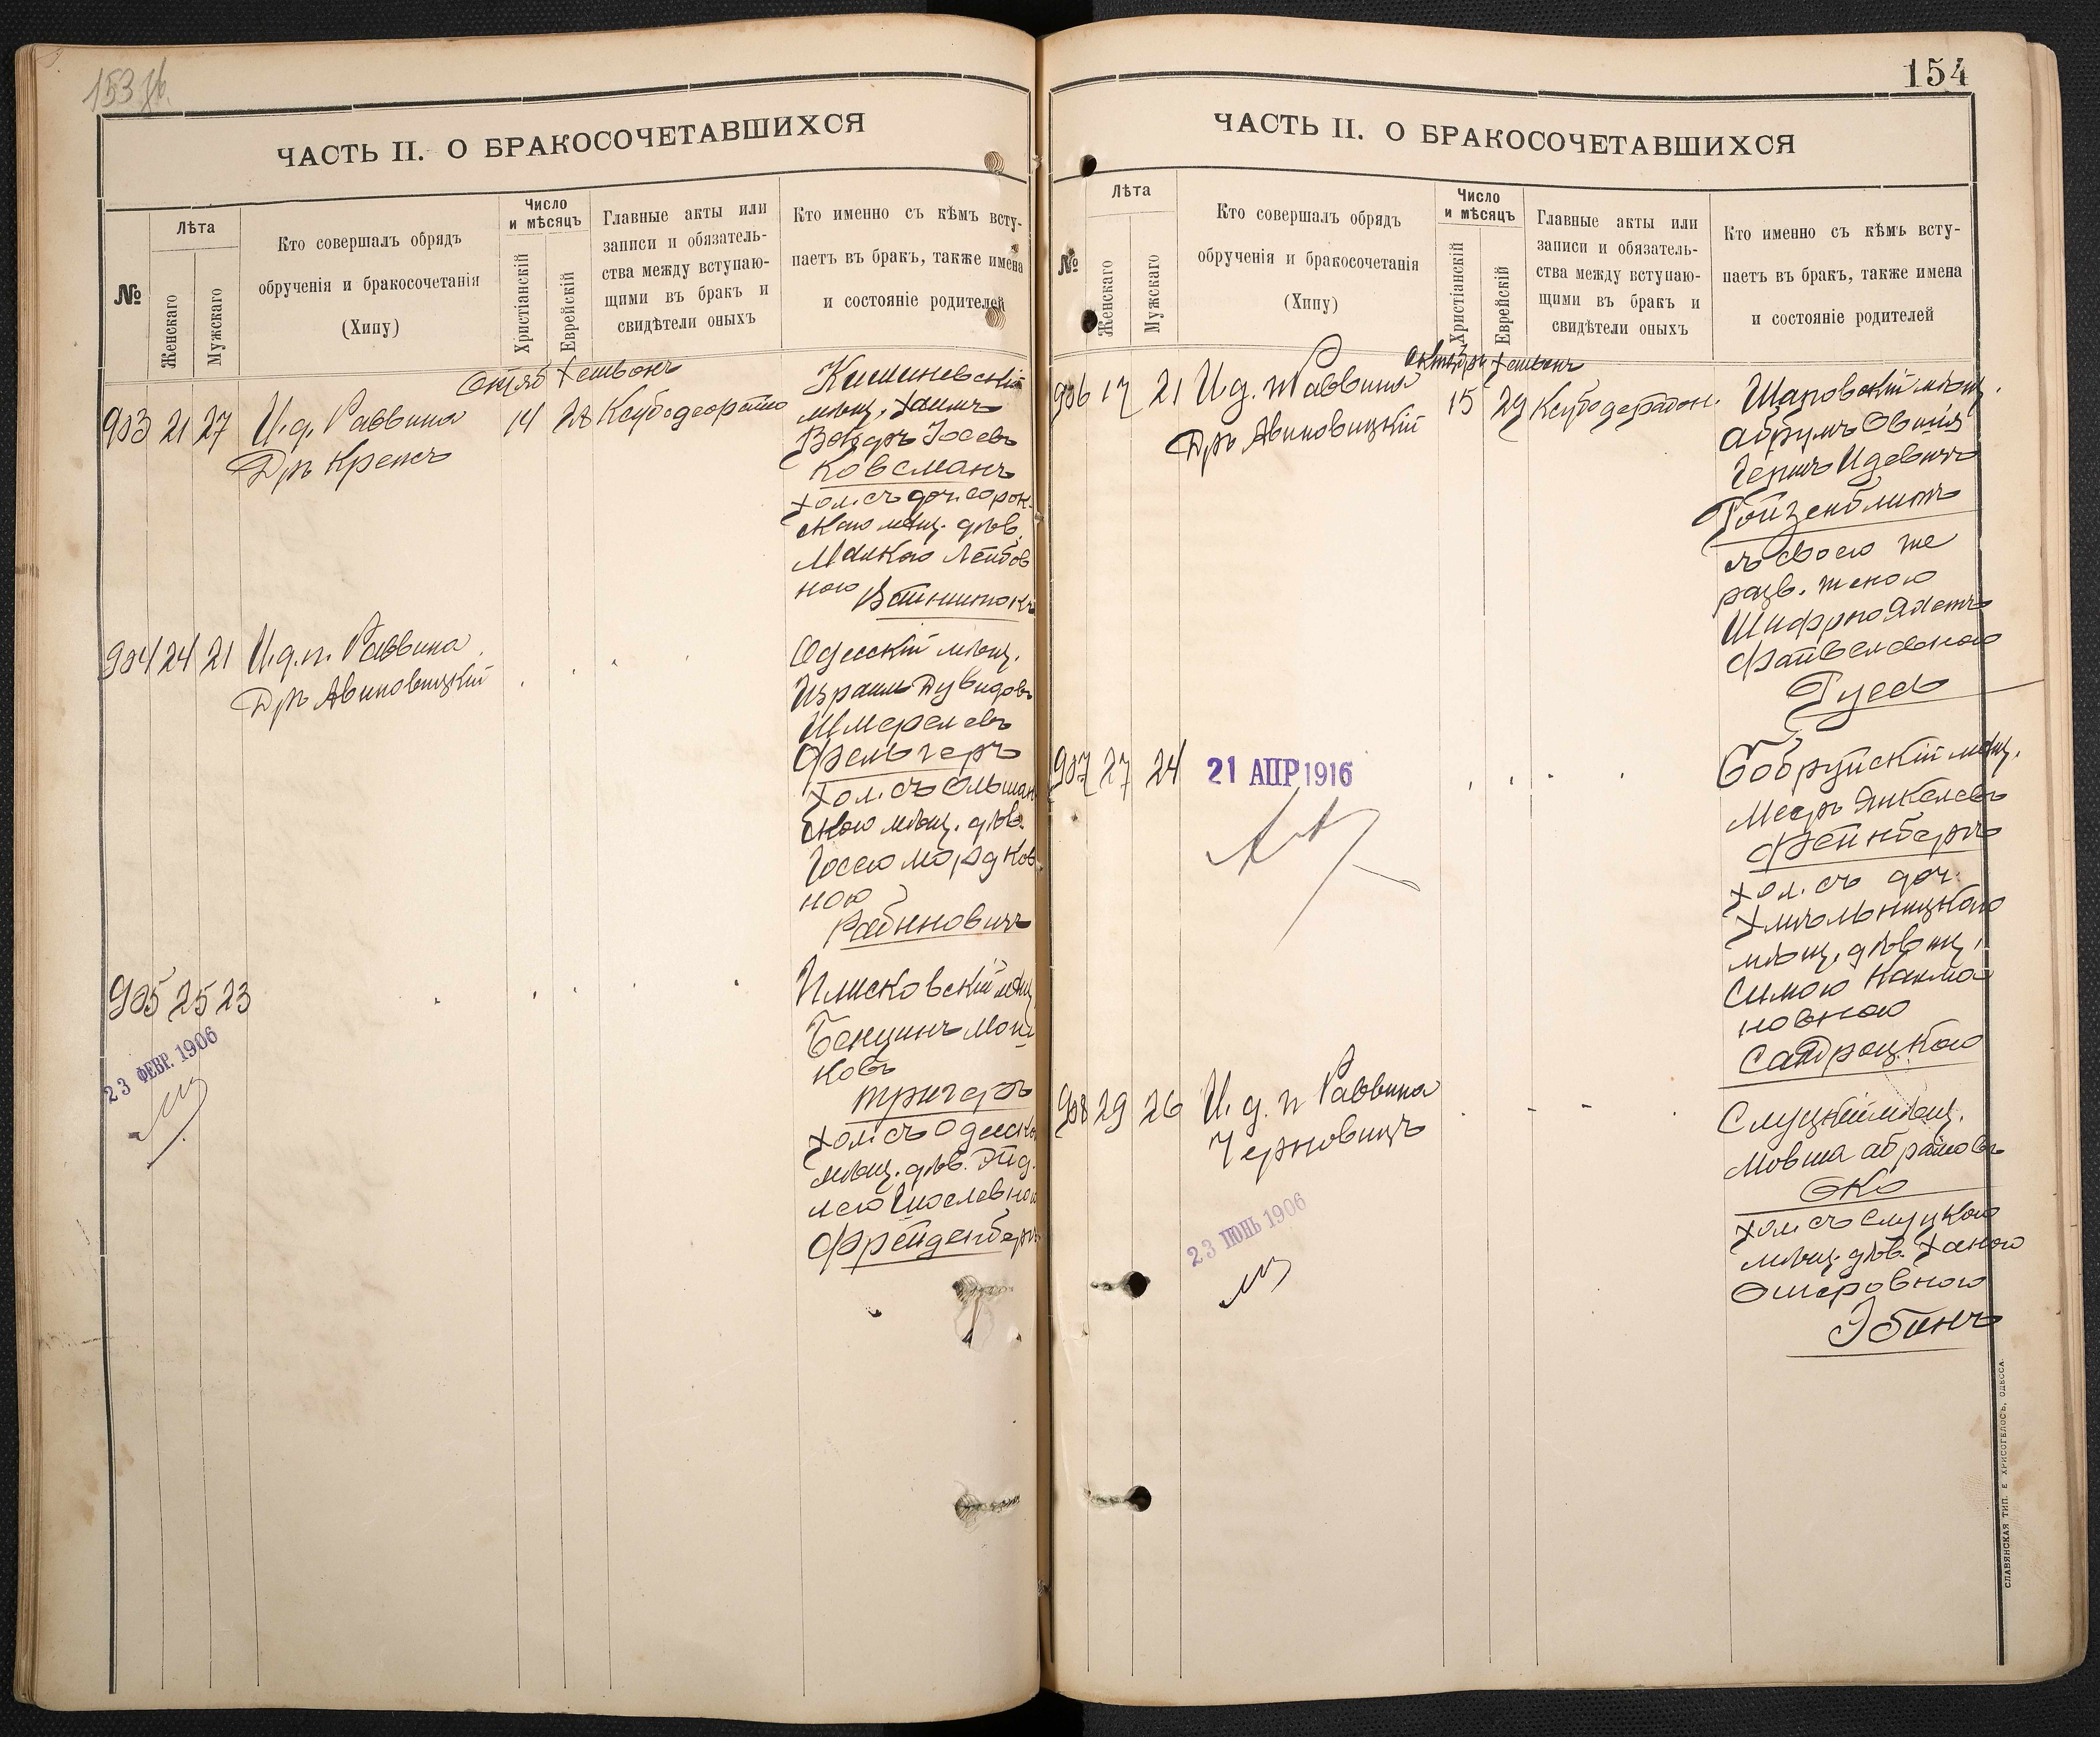 153 об.
ЧАСТЬ II. О БРАКОСОЧЕТАВШИХСЯ
№
Лѣта
Женскаго
Мужскаго
Кто совершалъ обрядъ
обрученія и бракосочетанія
(Хипу)
Число
и мѣсяцъ
Христіанскій
Еврейскій
Главные акты или
записи и обязатель-
ства между вступаю-
щими въ бракъ и
свидѣтели оныхъ
Кто именно съ кѣмъ всту-
паетъ въ бракъ, также имена
и состояніе родителей
Хешвонъ
903 21 27 И.д. Раввина 14 28
Дръ Крепсъ
Кишиневскій
мѣщ. Хаимъ
Іосевъ
Ковсманъ
хол. съ доч. сорок-
скаго мѣщ. дѣв.
Малкою Лейбов
ною Вайнштокъ
904 24 21 И.д.п. Раввина
Дръ Авиновицкій
Одесскій мѣщ.
Израиль Дувидовъ
Шмерелевъ
Фельгеръ
хол. съ Ольшан
скою мѣщ. дѣв.
Іосею Мордков
ною
Рабиновичъ
905 25 23
23 ФЕВР. 1906
Плисковскій мѣщ
Бенціинъ Мош
ковъ
Тригеръ
хол. съ Одесско
мѣщ. дѣв. Эйд-
лею Іоселевною
Фрейденбергъ
154
ЧАСТЬ II. О БРАКОСОЧЕТАВШИХСЯ
№
Лѣта
Женскаго
Мужскаго
Кто совершалъ обрядъ
обрученія и бракосочетанія
(Хипу)
Число
и мѣсяцъ
Христіанскій
Еврейскій
Главные акты или
записи и обязатель-
ства между вступаю-
щими въ бракъ и
свидѣтели оныхъ
Кто именно съ кѣмъ всту-
паетъ въ бракъ, также имена
и состояніе родителей
Октябрь Хешвонъ
906 17 21 И.д. п Раввина 15 29
Дръ Авиновицкій
мѣщ.
Абрумъ Овшія
Гершъ Идевичъ
Гойзенблитъ
съ своею же
разв. женою
Шифрою
Файвелевною
Гусъ
907 27 24 21 АПР 1916
Бобруйскій мѣщ.
Мееръ Янкелевъ
Фейнбергъ
хол. съ доч.
Хмѣльницкаго
мѣщ. дѣвиц.
Симою Калма
новною
908 29 26 И.д. п Раввина
Черновицъ
23 ІЮНЬ 1906
Слуцкій мѣщ.
Мовша Абрамовъ
Эко
хол. съ слуцкою
мѣщ. дѣв. Ханою
Ошеровною
СЛАВЯНСКАЯ ТИП. Е ХРИСОГЕЛОСЪ, ОДЕССА.